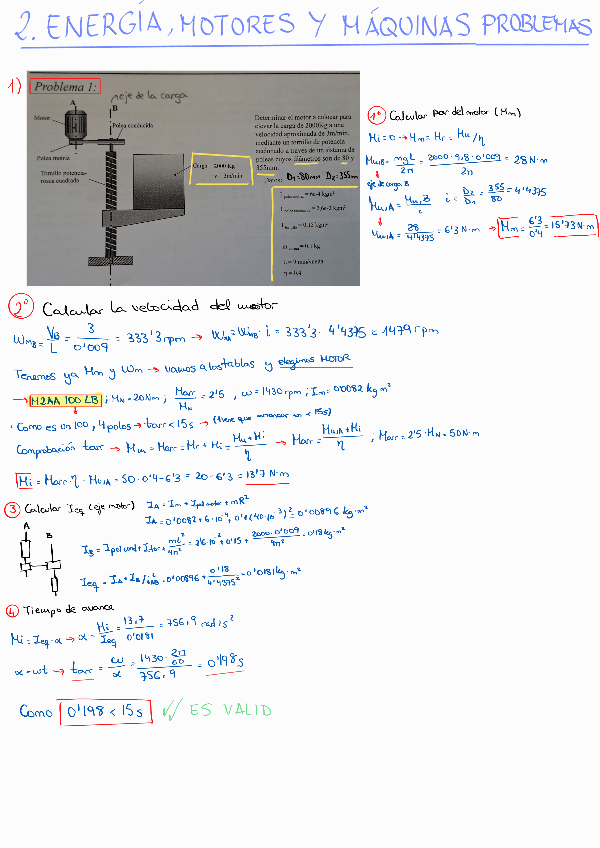 2. ENERGÍA, MOTORES Y MÁQUINAS PROBLEMAS
1)
Problema 1:
eje de la carga
A
B
Motor
Polea conducida
Polea motriz
Tornillo potencia-
rosca cuadrada
Carga 2000 Kg
v = 3m/min
Determinar el motor a colocar para
elevar la carga de 2000Kg a una
velocidad aproximada de 3m/min.
mediante un tornillo de potencia
accionado a través de un sistema de
poleas cuyos diámetros son de 80 y
355mm.
Datos: D1=80mm D2=355mm
η = 0,4
1º Calcular par del motor (Mm)
Mi=0 → Mm = Mr = Mu/η
MuB = mgL/2π = 2000·9,8·0'009/2π = 28 N·m
eje de carga, B
Mu,A = Mu,B/i i = D2/D1 = 355/80 = 4'4375
Mu,A = 28/4'4375 = 6'3 N·m → Mm = 6'3/0'4 = 15'73 N·m
2º Calcular la velocidad del motor
WmB = VB/L = 3/0'009 = 333'3 rpm → WM = WMB · i = 333'3 · 4'4375 = 1479 rpm
Tenemos ya Mm y Wm → vamos a las tablas y elegimos MOTOR
→ M2AA 100 LB ; MN = 20Nm ; Marr/MN = 2'5 , ω = 1430 rpm ; Im = 0'0082 kg m²
· Como es un 100, 4 polos → tarr < 15 s → (tiene que arrancar en < 15s)
Comprobación tarr → Mm = Marr = Mr + Mi = Mu+Mi/η → Marr = Mu,A+Mi/η ; Marr = 2'5·MN = 50N·m
Mi = Marr·η - Mu,A = 50·0'4-6'3 = 20-6'3 = 13'7 N·m
3 Calcular Ieq (eje motor) IA = Im + Ipol motor + mR²
IA = 0'0082 + 6·10⁻⁴ + 0'1·(40·10⁻³)² = 0'00896 kg·m²
A
B
IB = Ipol cond + Itor + mL²/4π² = 2'6·10⁻² + 0'15 + 2000·0'009/4π² = 0'18 kg·m²
Ieq = IA + IB/i²AB = 0'00896 + 0'18/4'4375² = 0'0181 kg·m²
4 Tiempo de avance
Mi = Ieq·α → α = Mi/Ieq = 13,7/0'0181 = 756,9 rad/s²
α=wt → tarr = ω/α = 1430·2π/60/756,9 = 0'198 s
Como 0'198 < 15 s ✓✓ ES VALID